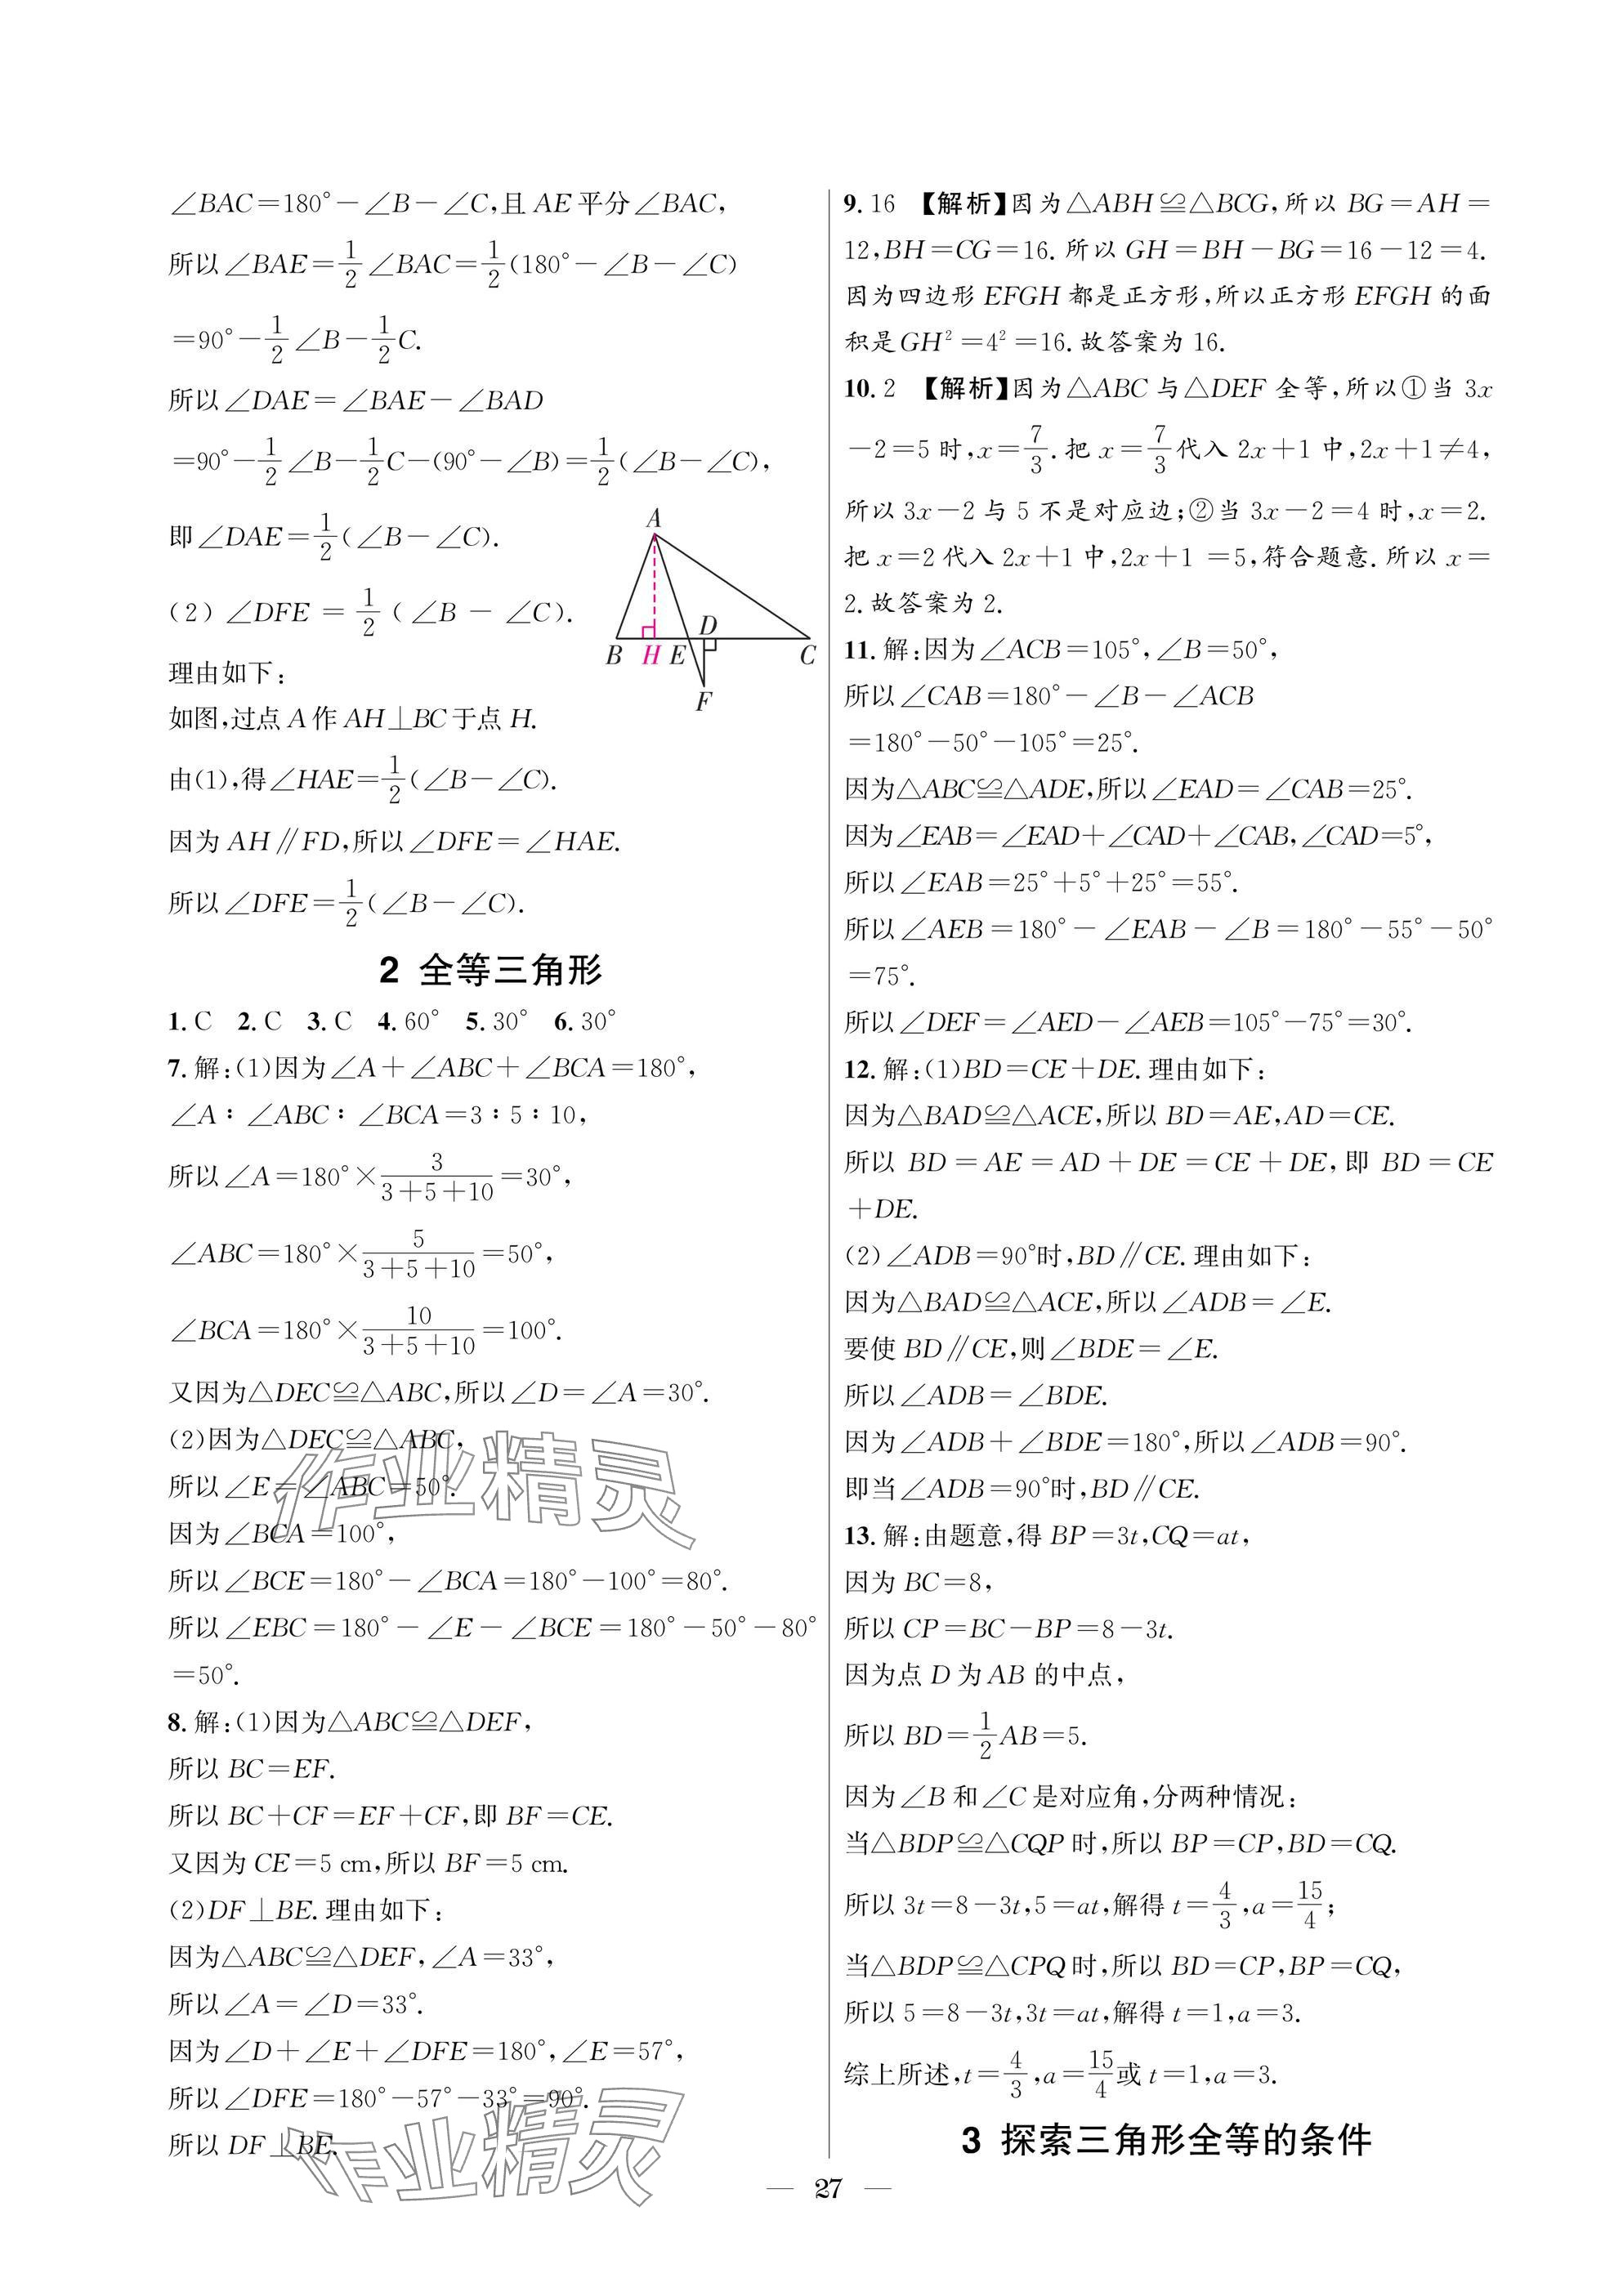 ∠BAC=180°-∠B-∠C,且 AE 平分∠BAC,
所以∠BAE=1/2∠BAC=1/2(180°-∠B-∠C)
=90°-1/2∠B-1/2C.
所以∠DAE=∠BAE-∠BAD
=90°-1/2∠B-1/2C-(90°-∠B)=1/2(∠B-∠C),
即∠DAE=1/2(∠B-∠C).
(2) ∠DFE=1/2(∠B-∠C).
理由如下:
如图,过点 A 作 AH⊥BC 于点 H.
A
B H E D C
F
由(1),得∠HAE=1/2(∠B-∠C).
因为 AH∥FD,所以∠DFE=∠HAE.
所以∠DFE=1/2(∠B-∠C).
2 全等三角形
1. C 2. C 3. C 4. 60° 5. 30° 6. 30°
7. 解:(1)因为∠A+∠ABC+∠BCA=180°,
∠A:∠ABC:∠BCA=3:5:10,
所以∠A=180°×3/(3+5+10)=30°,
∠ABC=180°×5/(3+5+10)=50°,
∠BCA=180°×10/(3+5+10)=100°.
又因为△DEC≌△ABC,所以∠D=∠A=30°.
(2)因为△DEC≌△ABC,
所以∠E=∠ABC=50°.
因为∠BCA=100°,
所以∠BCE=180°-∠BCA=180°-100°=80°.
所以∠EBC=180°-∠E-∠BCE=180°-50°-80°
=50°.
8. 解:(1)因为△ABC≌△DEF,
所以 BC=EF.
所以 BC+CF=EF+CF,即 BF=CE.
又因为 CE=5 cm,所以 BF=5 cm.
(2)DF⊥BE. 理由如下:
因为△ABC≌△DEF,∠A=33°,
所以∠A=∠D=33°.
因为∠D+∠E+∠DFE=180°,∠E=57°,
所以∠DFE=180°-57°-33°=90°.
所以 DF⊥BE.
作业精灵
作业精灵
9. 16 【解析】因为△ABH≌△BCG,所以 BG=AH=
12,BH=CG=16. 所以 GH=BH-BG=16-12=4.
因为四边形 EFGH 都是正方形,所以正方形 EFGH 的面
积是GH²=4²=16. 故答案为 16.
10. 2 【解析】因为△ABC 与△DEF 全等,所以①当 3x
-2=5 时,x=7/3. 把 x=7/3代入 2x+1 中,2x+1≠4,
所以 3x-2 与 5 不是对应边;②当 3x-2=4 时,x=2.
把 x=2 代入 2x+1 中,2x+1 =5,符合题意. 所以 x=
2. 故答案为 2.
11. 解:因为∠ACB=105°,∠B=50°,
所以∠CAB=180°-∠B-∠ACB
=180°-50°-105°=25°.
因为△ABC≌△ADE,所以∠EAD=∠CAB=25°.
因为∠EAB=∠EAD+∠CAD+∠CAB,∠CAD=5°,
所以∠EAB=25°+5°+25°=55°.
所以∠AEB=180°-∠EAB-∠B=180°-55°-50°
=75°.
所以∠DEF=∠AED-∠AEB=105°-75°=30°.
12. 解:(1)BD=CE+DE. 理由如下:
因为△BAD≌△ACE,所以 BD=AE,AD=CE.
所以 BD=AE=AD+DE=CE+DE,即 BD=CE
+DE.
(2)∠ADB=90°时,BD∥CE. 理由如下:
因为△BAD≌△ACE,所以∠ADB=∠E.
要使 BD∥CE,则∠BDE=∠E.
所以∠ADB=∠BDE.
因为∠ADB+∠BDE=180°,所以∠ADB=90°.
即当∠ADB=90°时,BD∥CE.
13. 解:由题意,得 BP=3t,CQ=at,
因为 BC=8,
所以 CP=BC-BP=8-3t.
因为点 D 为 AB 的中点,
所以 BD=1/2AB=5.
因为∠B 和∠C 是对应角,分两种情况:
当△BDP≌△CQP 时,所以 BP=CP,BD=CQ.
所以 3t=8-3t,5=at,解得 t=4/3,a=15/4;
当△BDP≌△CPQ 时,所以 BD=CP,BP=CQ,
所以 5=8-3t,3t=at,解得 t=1,a=3.
综上所述,t=4/3,a=15/4或 t=1,a=3.
3 探索三角形全等的条件
— 27 —